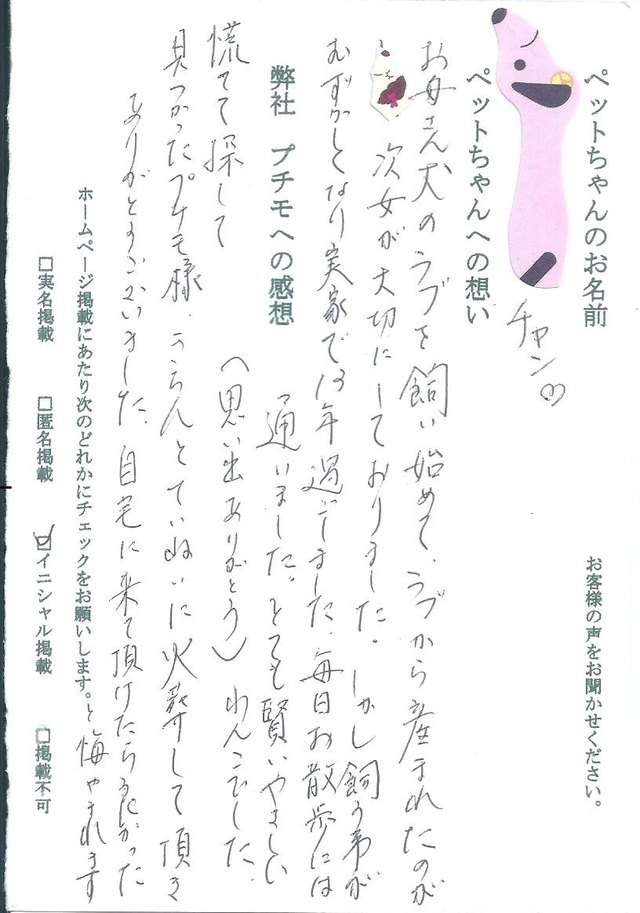 お客様の声をお聞かせください。
ペットちゃんのお名前
チャン
ペットちゃんへの想い
お母さん犬のラブを飼い始めて、ラブから産まれたのが
次女が大切にしておりました。しかし飼う事が
むずかしくなり実家で13年過ごしました。毎日お散歩には
通いました。とても賢いやさしい
わんこでした。
(思い出ありがとう)
弊社 プチモへの感想
慌てて探して
見つかったプチモ様、きちんとていねいに火葬して頂き
ありがとうございました。自宅に来て頂けたらよかった
と悔やまれます
ホームページ掲載にあたり次のどれかにチェックをお願いします。
□実名掲載
□匿名掲載
☑イニシャル掲載
□掲載不可